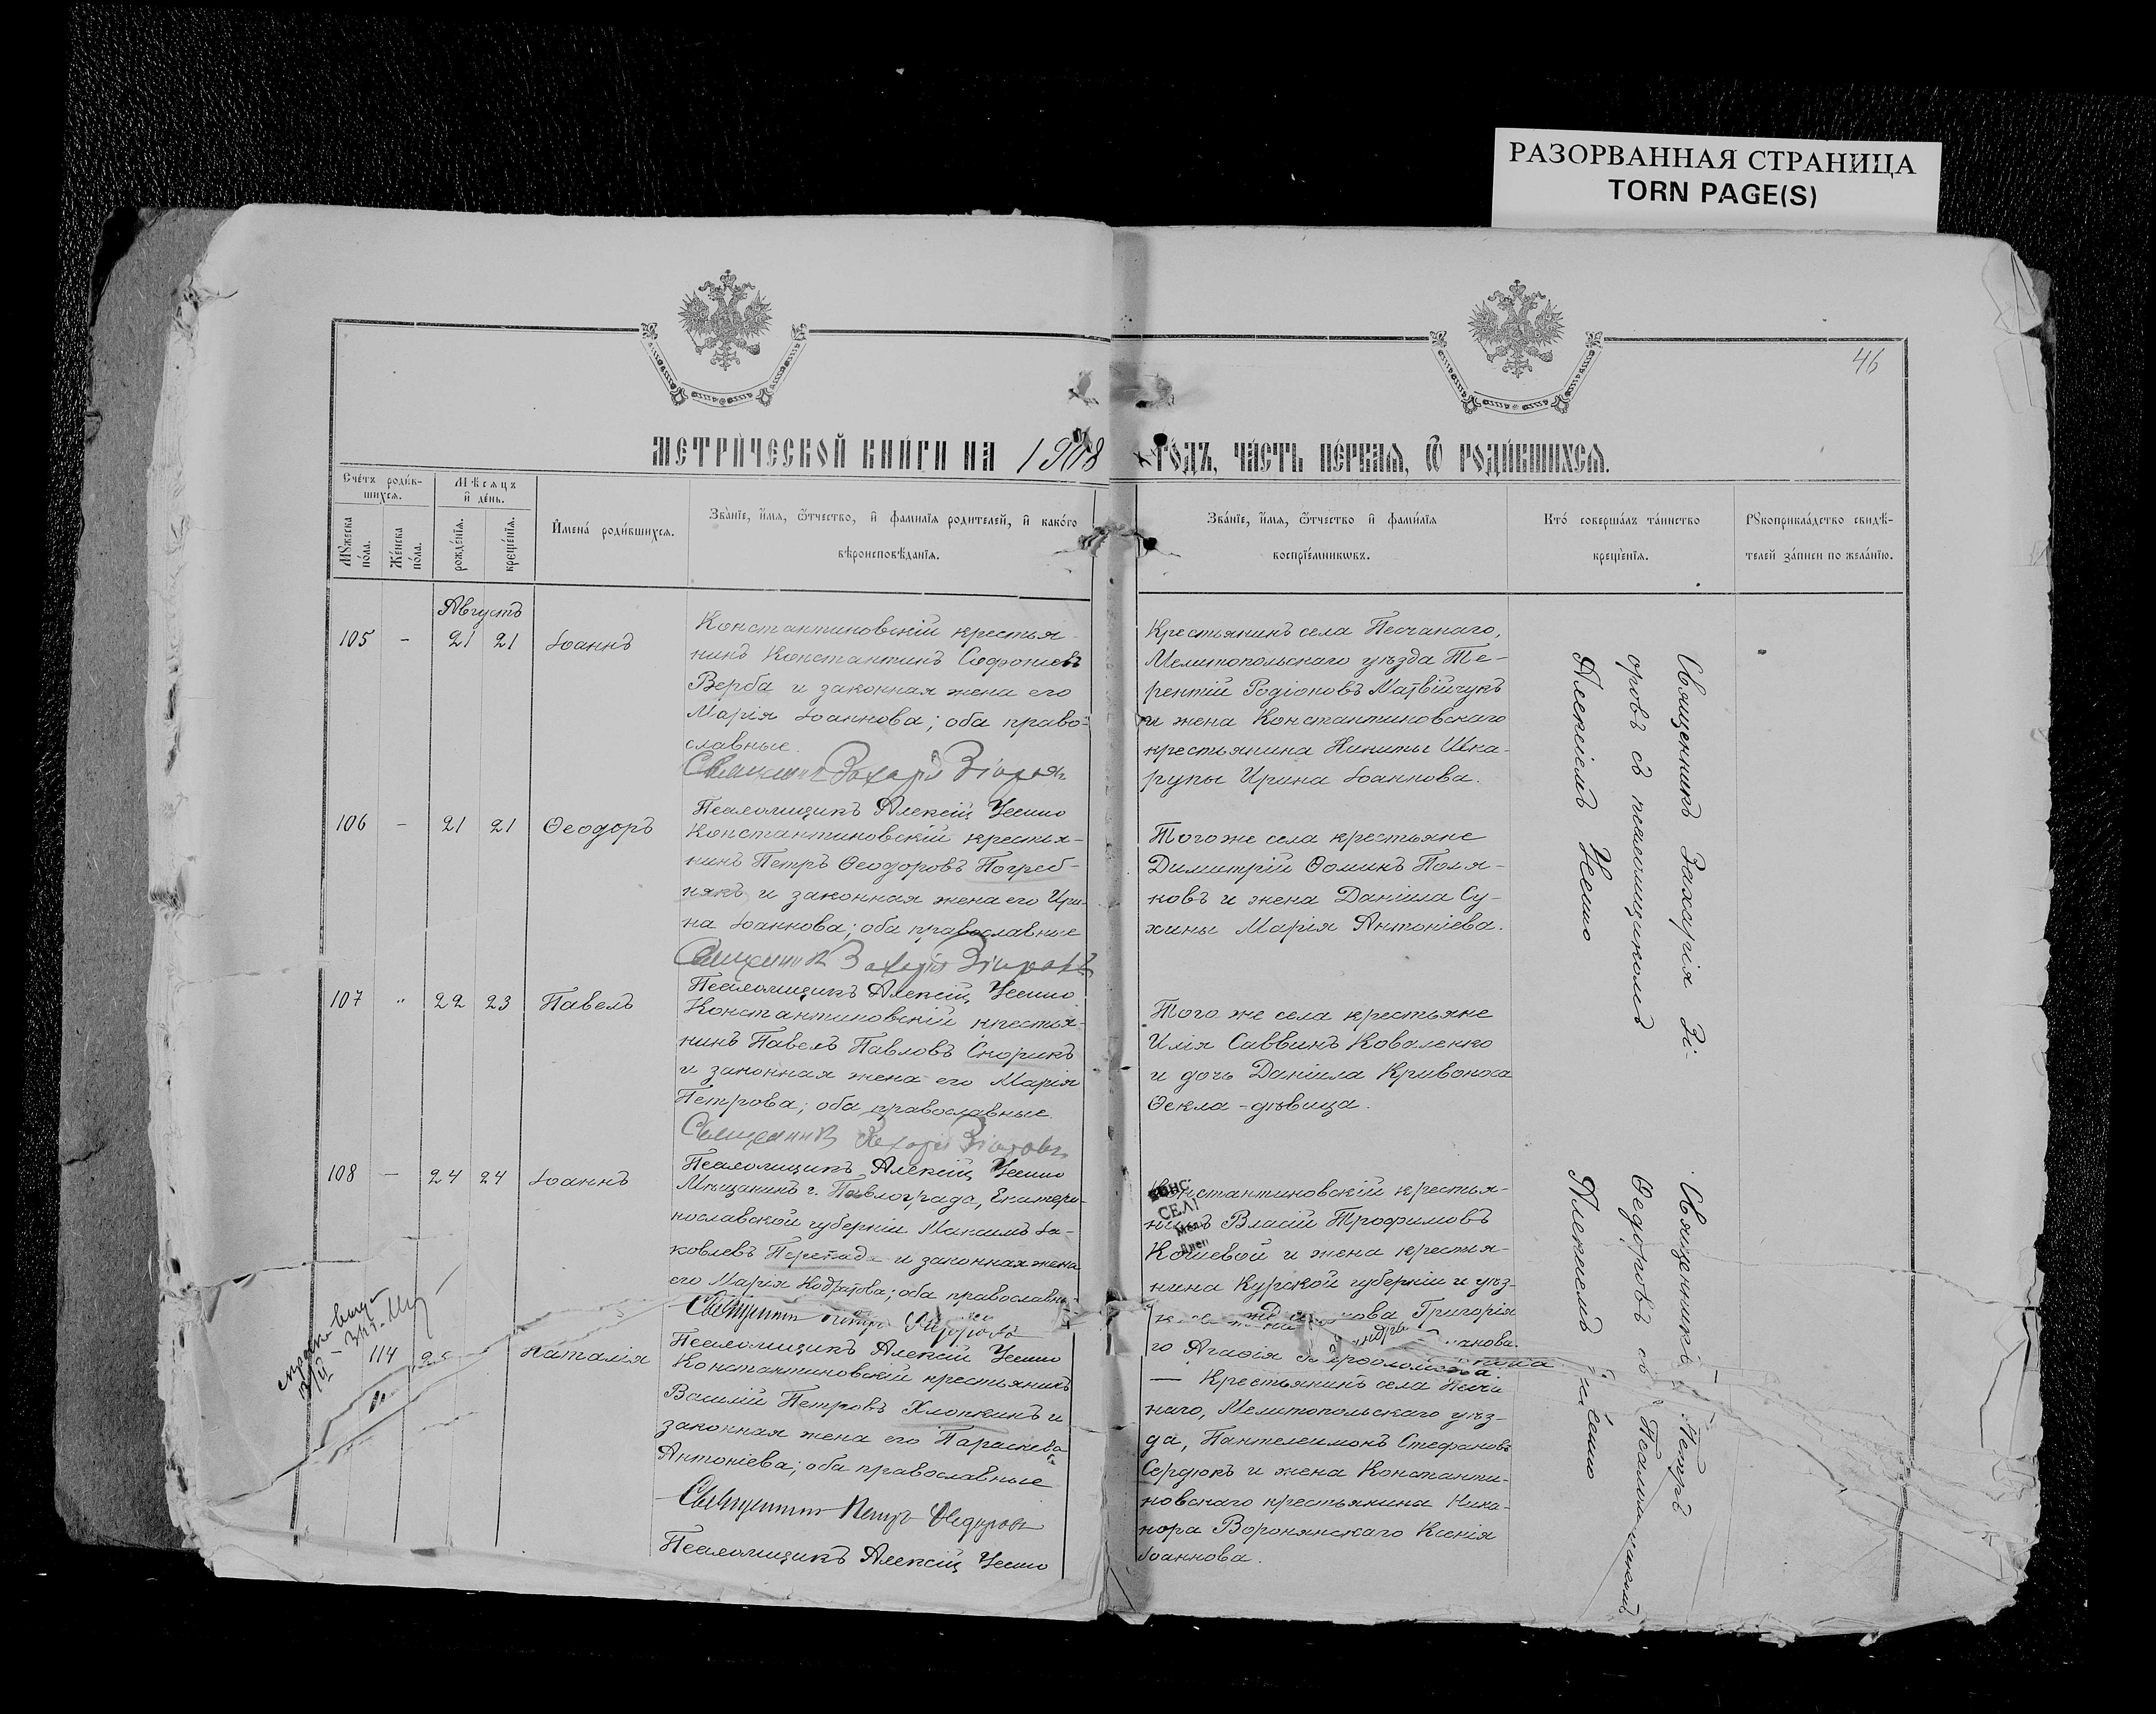 РАЗОРВАННАЯ СТРАНИЦА
TORN PAGE(S)
46
МЕТРИ́ЧЕСКОЙ КНИ́ГИ НА 1908 ГО́ДЪ, ЧА́СТЬ ПЕ́РВАЯ, Ѿ РОДИ́ВШИХСЯ.
Сче́тъ роди́в-
шихся.
Мѣ́сяцъ
и де́нь.
Му́жеска
по́ла.
Же́нска
по́ла.
рожде́нія.
креще́нія.
Имена́ роди́вшихся.
Зва́ніе, и́мя, ѻ́тчество, и фами́лія родителей, и како́го
вѣроисповѣ́данія.
Зва́ніе, и́мя, ѻ́тчество и фами́лія
воспріе́мниковъ.
Кто́ соверша́лъ та́инство
креще́нія.
Рукоприкла́дство свидѣ́-
телей за́писи по жела́нію.
Августъ
105 - 21 21 Іоаннъ
Константиновскій крестья-
нинъ Константинъ Софоніевъ
Верба и законная жена его
Марія Іоаннова; оба право-
славные.
Священникъ Захарій
Псаломщикъ Алексій
Крестьянинъ села Песчанаго,
Мелитопольскаго уѣзда Те-
рентій Родіоновъ Матвійчукъ
и жена Константиновскаго
крестьянина Никиты Шка-
рупы Ирина Іоаннова.
Священникъ Захарія Зі-
оровъ съ псаломщикомъ
Алексіемъ
106 - 21 21 Ѳеодоръ
Константиновскій крестья-
нинъ Петръ Ѳеодоровъ Погреб-
някъ и законная жена его Ири-
на Іоаннова; оба православные
Священникъ Захарій
Псаломщикъ Алексій
Того же села крестьяне
Димитрій Ѳоминъ Поля-
ковъ и жена Даніила Су-
хины Марія Антоніева.
107 " 22 23 Павелъ
Константиновскій крестья-
нинъ Павелъ Павловъ Скорикъ
и законная жена его Марія
Петрова; оба православные.
Священникъ Захарій
Псаломщикъ Алексій
Того же села крестьяне
Илія Саввинъ Коваленко
и дочь Даніила Кривоноса
Ѳекла - дѣвица.
108 - 24 24 Іоаннъ
Мѣщанинъ г. Павлограда, Екатери-
нославской губерніи Максимъ Іа-
ковлевъ и законная жена
его Марія Кодратова; оба православные
Священникъ Петръ Ѳедоровъ
Псаломщикъ Алексій
Константиновскій крестья-
нинъ Власій Трофимовъ
Кошевой и жена крестья-
нина Курской губерніи и уѣз-
Григорія
го Агафія
Священникъ Петръ
Ѳедоровъ съ Псаломщикомъ
Алексіемъ
114 Наталія
Константиновскій крестьянинъ
Василій Петровъ Хлопкинъ и
законная жена его Параскева
Антоніева; оба православные
Священникъ Петръ Ѳедоровъ
Псаломщикъ Алексій
— Крестьянинъ села Песча
наго, Мелитопольскаго уѣз-
да, Пантелеимонъ Стефановъ
Сердюкъ и жена Константи-
новскаго крестьянина Ника-
нора Воронянскаго Ксенія
Іоаннова.